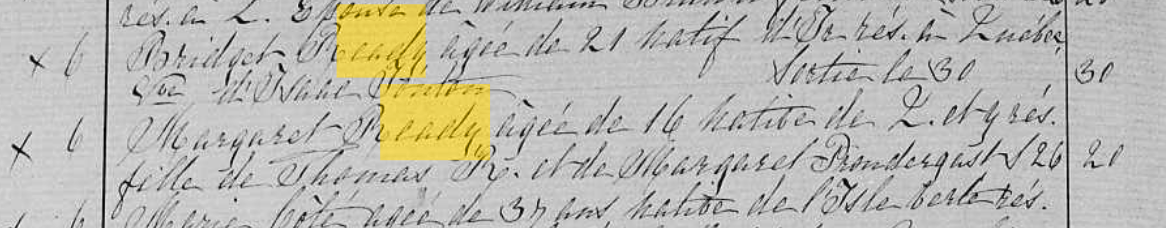 rés. à Z. Epouse de William
x 6 Bridget Ready âgée de 21 natif d'Ir rés. à Québec
Vve d'Isaac Sortie le 30 30
x 6 Margaret Ready âgée de 16 native de Z. et y rés.
fille de Thomas R. et de Margaret Prendergast S 26 20
6 Marie Côté agée de 37 ans, native de l'Isle Verte rés.